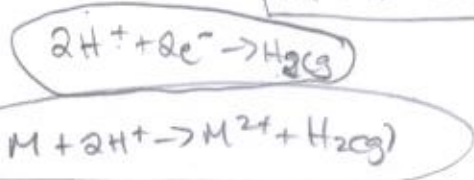 2H⁺ + 2e⁻ -> H₂(g)
M + 2H⁺ -> M²⁺ + H₂(g)